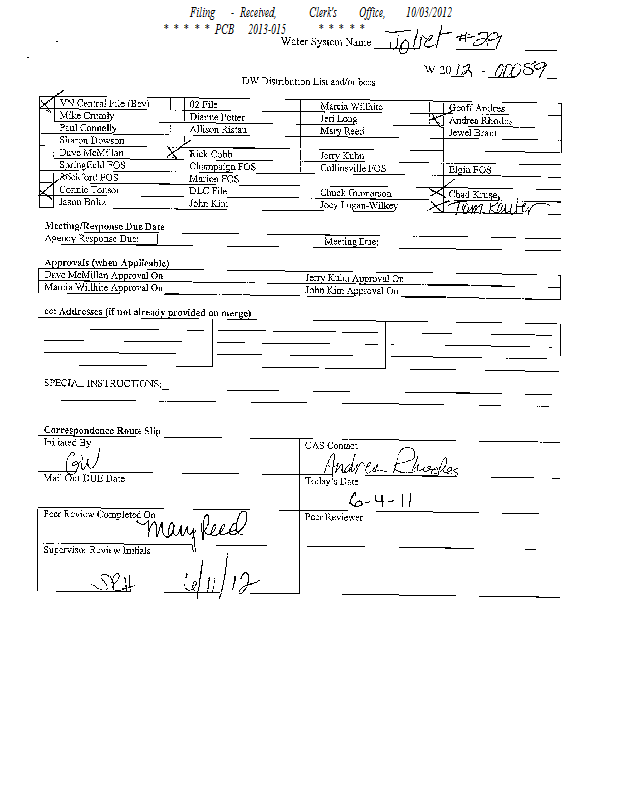 Filing - Received, Clerk's Office, 10/03/2012
* * * * * PCB 2013-015 * * * * *
Water System Name Joliet #29
W-2012 - 00089
DW Distribution List and/or bccs
VN Central File (Bev) 02 File Marcia Willhite Geoff Andres
Mike Crumly Dianne Potter Jeri Long Andrea Rhodes
Paul Connelly Allison Ristau Mary Reed Jewel Brant
Sharon Dowson
Dave McMillan Rick Cobb Jerry Kuhn
Springfield FOS Champaign FOS Collinsville FOS Elgin FOS
Rockford FOS Marion FOS
Connie Tonsor DLC File Chuck Gunnarson Chad Kruse,
Jason Boltz John Kim Joey Logan-Wilkey
Meeting/Response Due Date
Agency Response Due: Meeting Due:
Approvals (when Applicable)
Dave McMillan Approval On Jerry Kuhn Approval On
Marcia Willhite Approval On John Kim Approval On
cc: Addresses (if not already provided on merge)
SPECIAL INSTRUCTIONS:
Correspondence Route Slip
Initiated By CAS Contact
Andrea Rhodes
Mail Out DUE Date Today's Date
6-4-11
Peer Review Completed On Peer Reviewer
Mary Reed
Supervisor Review Initials
6/11/12